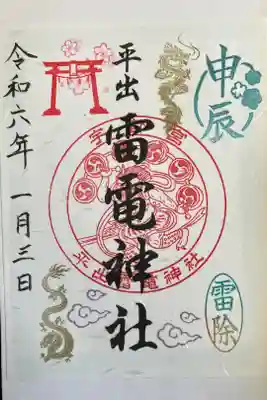 甲辰
雷除
平出
雷電神社
宇都宮
平出雷電神社
令和六年 一月三日